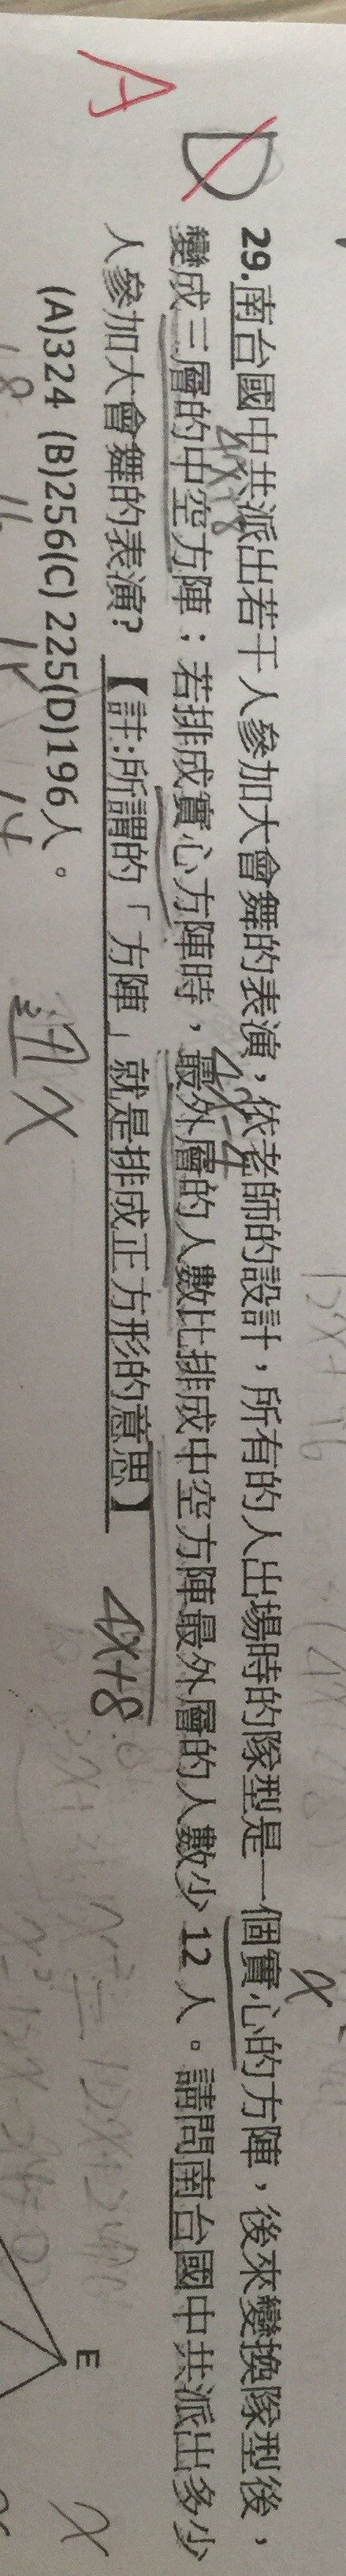 A
D
29.南台國中共派出若干人參加大會舞的表演，依老師的設計，所有的人出場時的隊型是一個實心的方陣，後來變換隊型後，
變成三層的中空方陣；若排成實心方陣時，最外層的人數比排成中空方陣最外層的人數少 12 人。請問南台國中共派出多少
人參加大會舞的表演？【註:所謂的「方陣」就是排成正方形的意思】
(A)324 (B)256(C) 225(D)196人。
4x+8
4x-4
4x+8
x
18 16 15 14
x
E
x